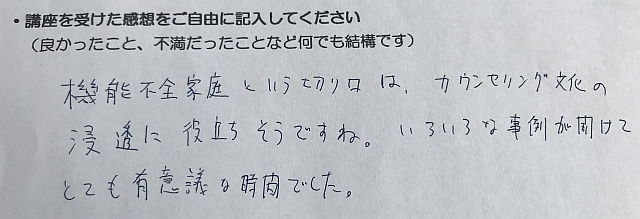 ・講座を受けた感想をご自由に記入してください
（良かったこと、不満だったことなど何でも結構です）
機能不全家庭という切り口は、カウンセリング文化の
浸透に役立ちそうですね。いろいろな事例が聞けて
とても有意議な時間でした。